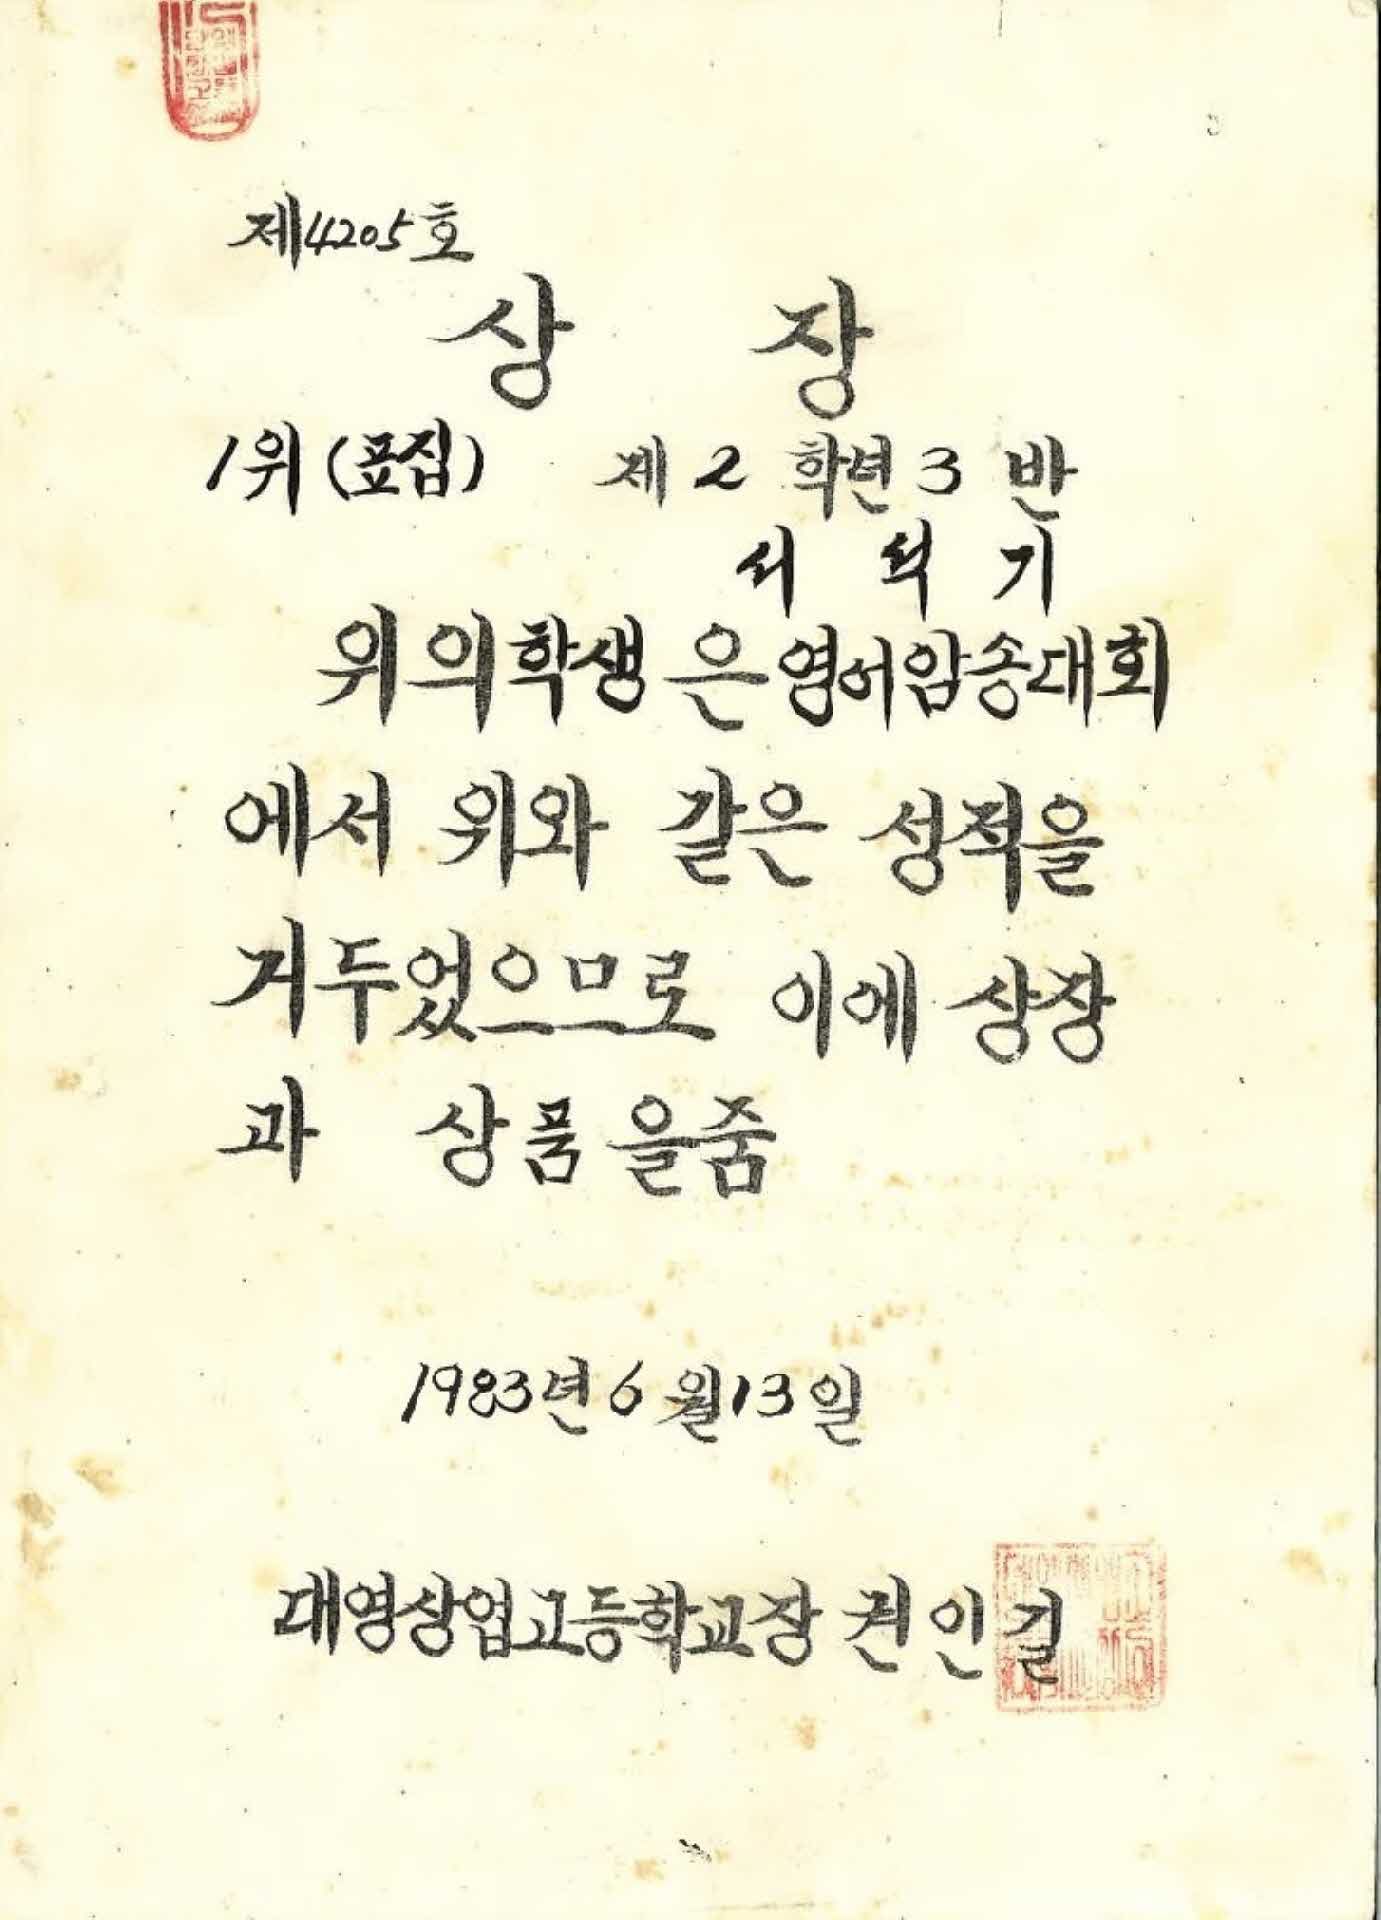 제4205호
상 장
1위(표집) 제2학년3반
서석기
위의학생은영어암송대회
에서 위와 같은 성적을
거두었으므로 이에 상장
과 상품을줌
1983년6월13일
대영상업고등학교장 권인길